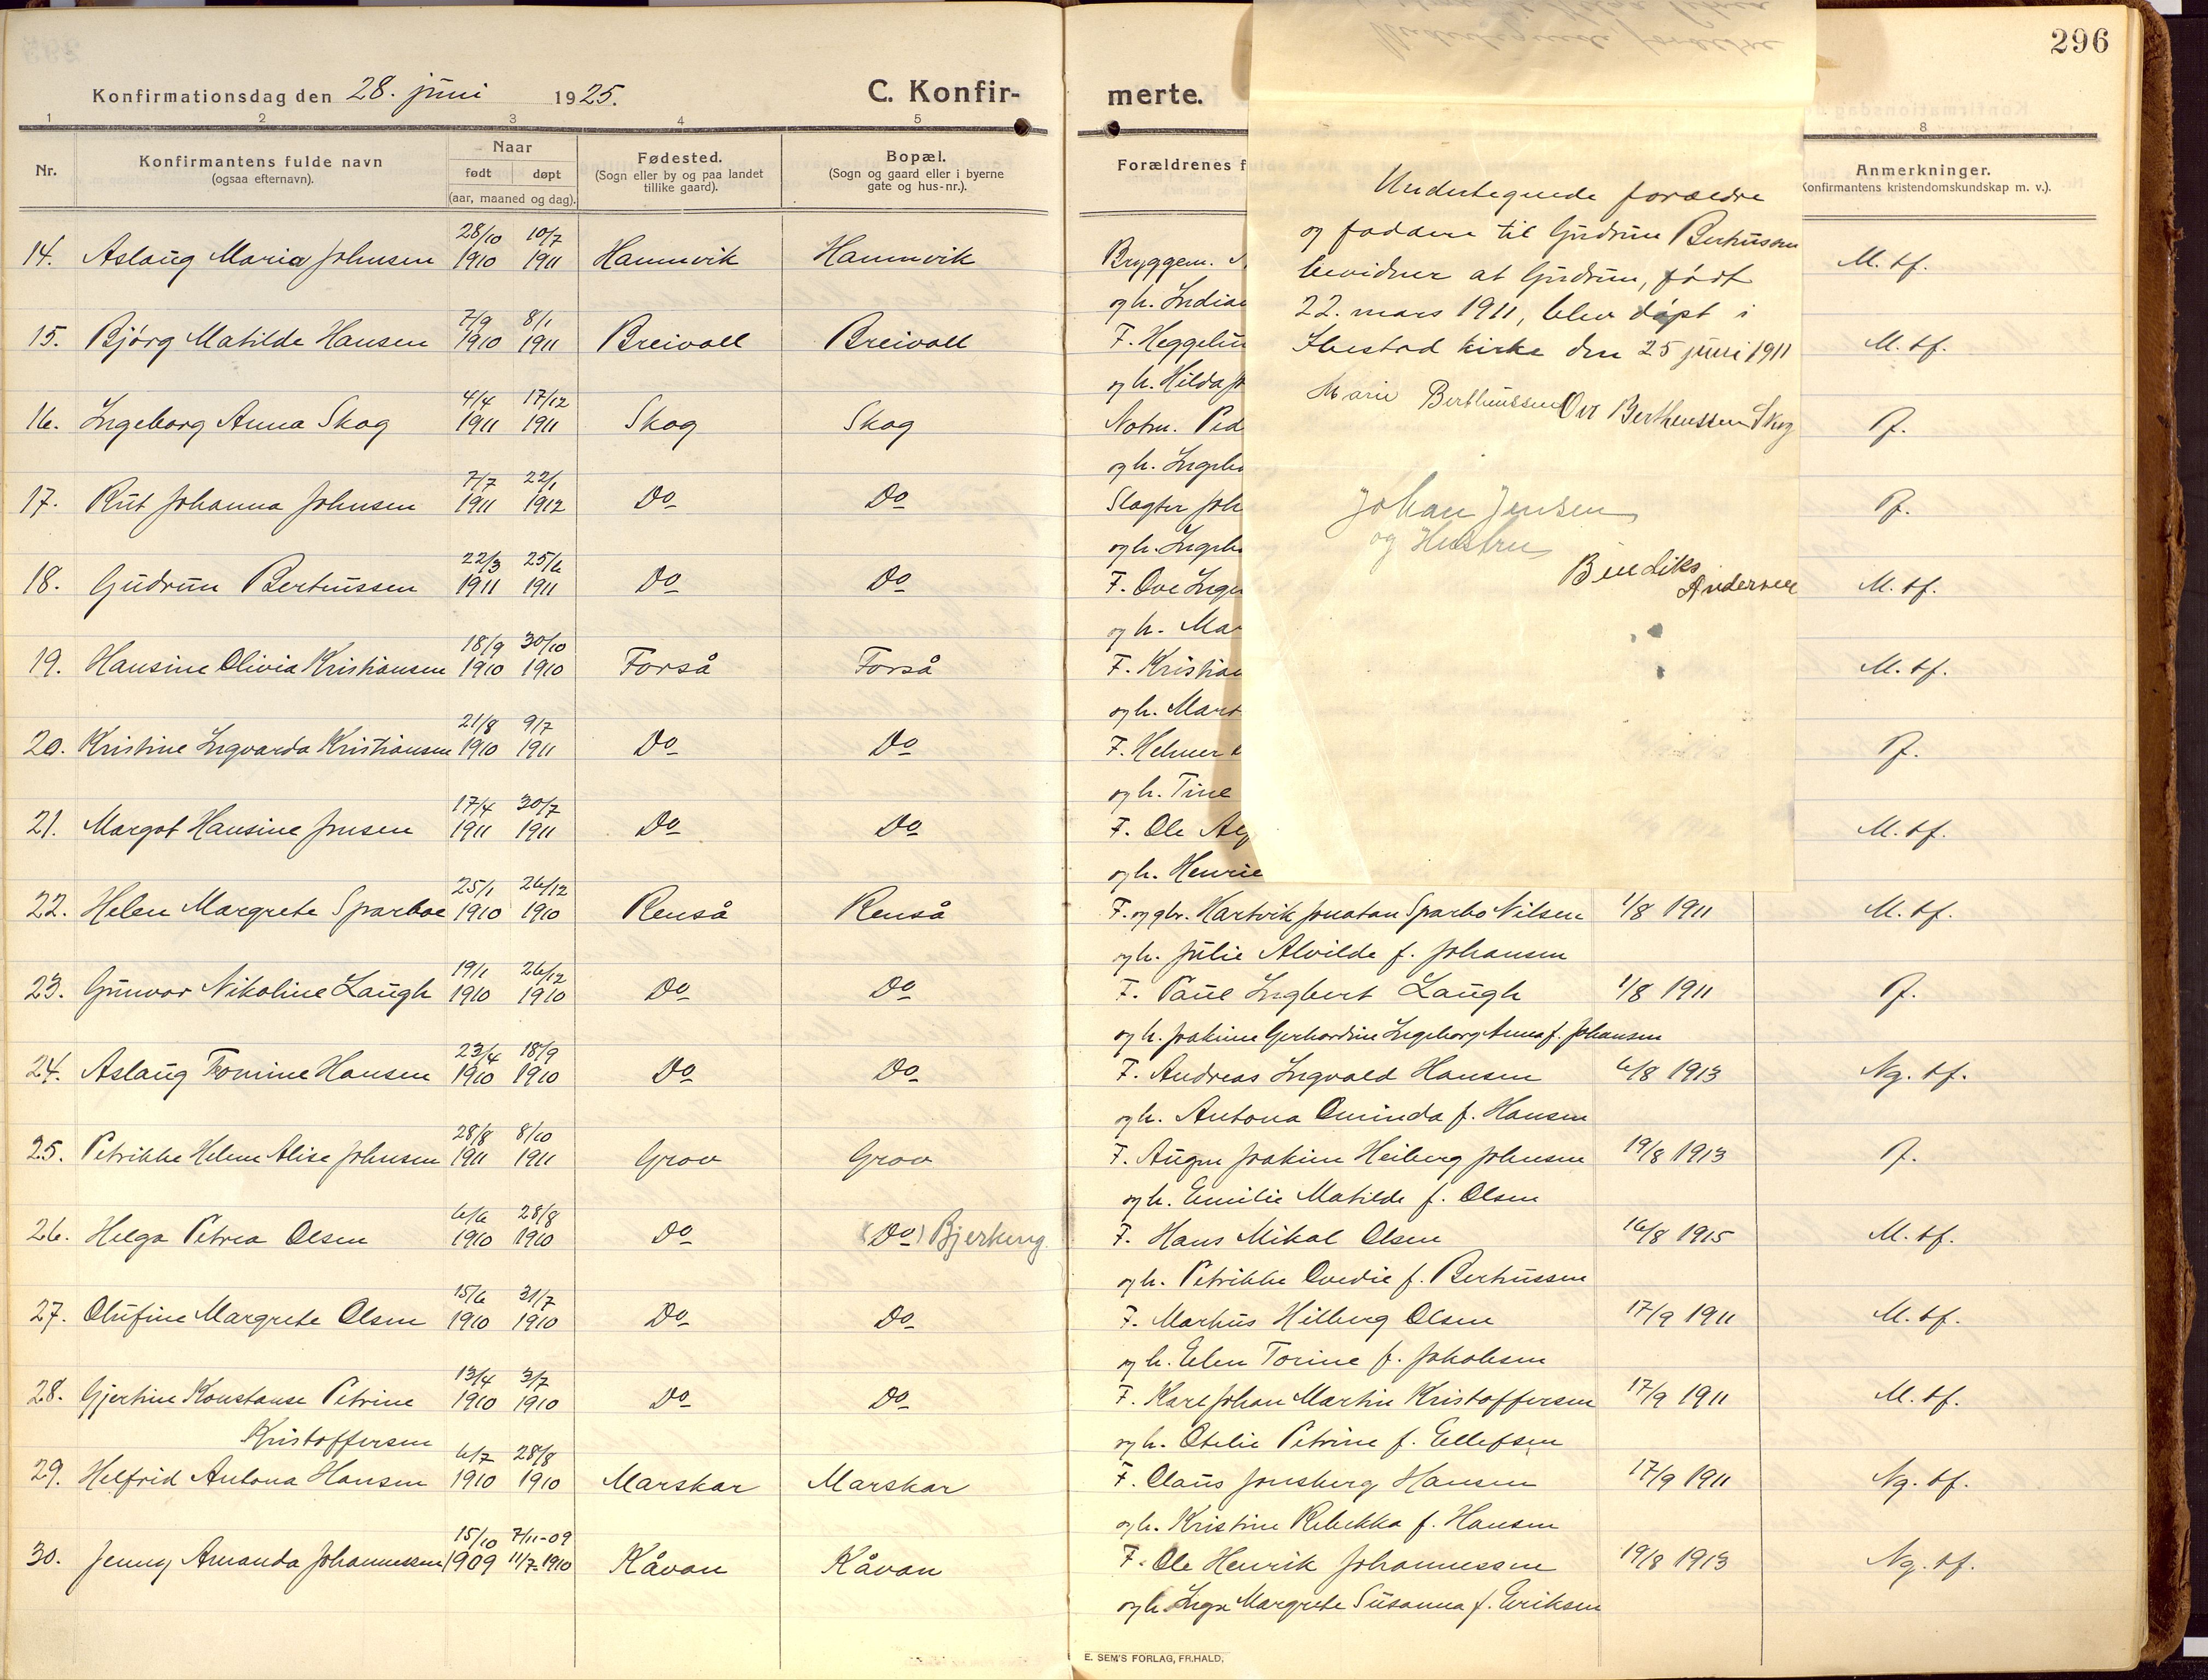 296
Konfirmationsdag den 28. juni 1925.
C. Konfir-
merte.
1 2 3 4 5
8
Nr.
Konfirmantens fulde navn
(ogsaa efternavn).
Naar
født døpt
(aar, maaned og dag).
Fødested.
(Sogn eller by og paa landet
tillike gaard).
Bopæl.
(Sogn og gaard eller i byerne
gate og hus-nr.).
Forældrenes f
Anmerkninger.
Konfirmantens kristendomskundskap m. v.).
28/10 10/7
14. Aslaug Maria Johnsen 1910 1911 Hamnvik Hamnvik
7/9 8/1
15. Bjørg Matilde Hansen 1910 1911 Breivoll Breivoll
4/4 17/12
16. Ingeborg Anna Skog 1911 1911 Skog Skog
7/7 22/1
17. Rut Johanna Johnsen 1911 1912 Do Do
22/3 25/6
18. Gudrun Bertussen 1911 1911 Do Do
18/9 30/10
19. Hansine Olivia Kristiansen 1910 1910 Forså Forså
21/8 9/7
20. Kristine Ingvarda Kristiansen 1910 1911 Do Do
17/4 30/7
21. Margot Hansine Jensen 1911 1911 Do Do
25/1 26/12
22. Helen Margrete Sparboe 1910 1910 Renså Renså
19/1 26/12
23. Gunvor Nikoline Laugh 1910 1910 Do Do
23/4 18/9
24. Aslaug Tomine Hansen 1910 1910 Do Do
28/8 8/10
25. Petrikke Helene Alise Johnsen 1911 1911 Grov Grov
6/6 28/8
26. Helga Petrea Olsen 1910 1910 Do (Do) Bjerkeng
15/6 31/7
27. Olufine Margrete Olsen 1910 1910 Do Do
13/4 3/7
28. Gjertine Konstanse Petrine 1910 1910 Do Do
Kristoffersen
6/7 28/8
29. Helfrid Antona Hansen 1910 1910 Marskar Marskar
15/10 7/11-09
30. Jenny Amanda Johannessen 1909 11/7-1910 Kåvan Kåvan
Bryggem.
M. tf.
og h. Indian
F. Heggelun
M. tf.
og h. Hilda Jo
Notm. Ped
og h. Ingeb
Slagter Joh
og h. Ingeb
F. Ove Inge
M. tf.
og h. Mar
F. Kristian
M. tf.
og h. Mart
F. Helmer
og h. Tine
F. Ole Alf
M. tf.
og h. Henrie
Undertegnede forældre
og faddere til Gudrun Bertussen
bevidner at Gudrun, født
22. mars 1911, blev døpt i
Ibestad kirke den 25 juni 1911
Marie Berthinussen Ove Bertheussen Skog
Johan Jensen
og Hustru
Bendiks
Andersen
F. og gbr. Hartvik Jonatan Sparbo Nilsen 1/8 1911 M. tf.
og h. Julie Alvilde f. Johansen
F. Paul Ingbert Laugh 1/8 1911
og h. Joakime Gerhardine Ingeborg Anna f. Johansen
F. Andreas Ingvald Hansen 6/8 1913 Ng. tf.
og h. Antona Ominda f. Hansen
F. Augen Joakim Heiberg Johnsen 19/8 1913
og h. Emilie Matilde f. Olsen
F. Hans Mikal Olsen 16/8 1915 M. tf.
og h. Petrikke Ovedie f. Bertussen
F. Markus Hilberg Olsen 17/9 1911 M. tf.
og h. Elen Torine f. Jakobsen
F. Karl Johan Martin Kristoffersen 17/9 1911 M. tf.
og h. Otelie Petrine f. Ellefsen
F. Claus Jensberg Hansen 17/9 1911 Ng. tf.
og h. Kristine Rebekka f. Hansen
F. Ole Henrik Johannessen 19/8 1913 Ng. tf.
og h. Inga Margrete Susanna f. Eriksen
E. SEM'S FORLAG, FR.HALD.